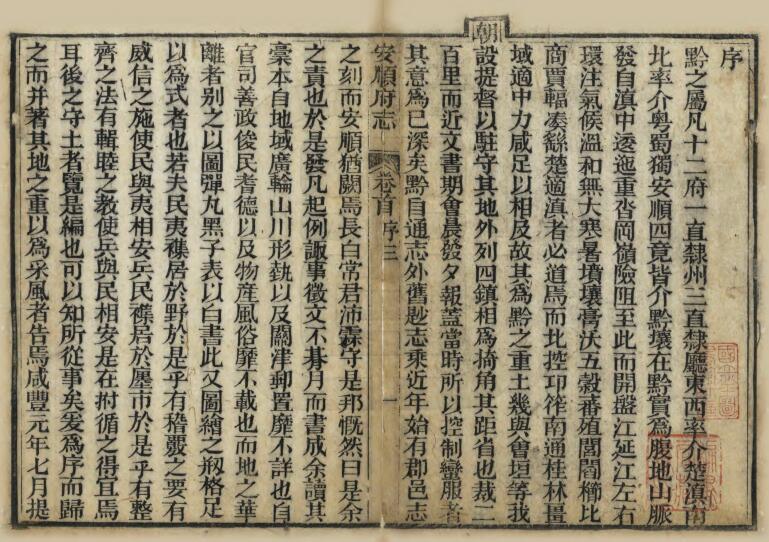 序
黔之屬凡十二府一直隸州三直隸廳東西率介楚滇南
北率介粵蜀獨安順四竟皆介黔壤在黔實爲腹地山脈
發自滇中透迤重沓岡嶺險阻至此而開盤江延江左右
環注氣候溫和無大寒暑墳壤膏沃五穀蕃殖閭閻櫛比
商賈輻凑繇楚適滇者必道焉而北控卭筰南通桂林畺
域適中力咸足以相及故其爲黔之重土幾與會垣等我
朝設提督以駐守其地外列四鎭相爲掎角其距省也裁二
百里而近文書期會晨發夕報蓋當時所以控制蠻服者
其意爲已深矣黔自通志外舊尟志乘近年始有郡邑志
安順府志 卷首 序三 一
之刻而安順猶闕焉長白常君沛霖守是邦慨然曰是余
之責也於是發凡起例諏事徵文不朞月而書成余讀其
稾本自地域廣輪山川形埶以及關津郵置靡不詳也自
官司善政俊民耆德以及物産風俗靡不載也而地之華
離者别之以圖彈丸黑子表以白書此又圖繪之刱格足
以爲式者也若夫民夷襍居於野於是乎有稽覈之要有
威信之施使民與夷相安兵民襍居於廛市於是乎有整
齊之法有輯睦之敎使兵與民相安是在拊循之得宜焉
耳後之守土者覽是編也可以知所從事矣爰爲序而歸
之而并著其地之重以爲采風者告焉咸豐元年七月提